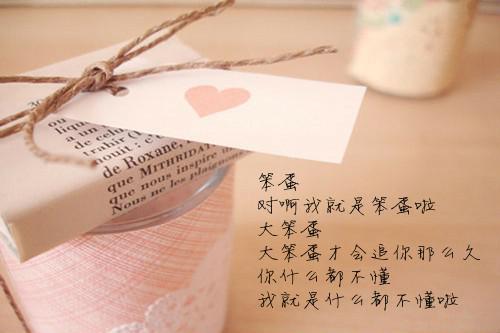 ou
liqu
à un
de celu
trahir O
nouit : e
de Roxane,
que MITHRIDAT
que nous inspire
Nous ne les plaignon
笨蛋
对啊我就是笨蛋啦
大笨蛋
大笨蛋才会追你那么久
你什么都不懂
我就是什么都不懂啦